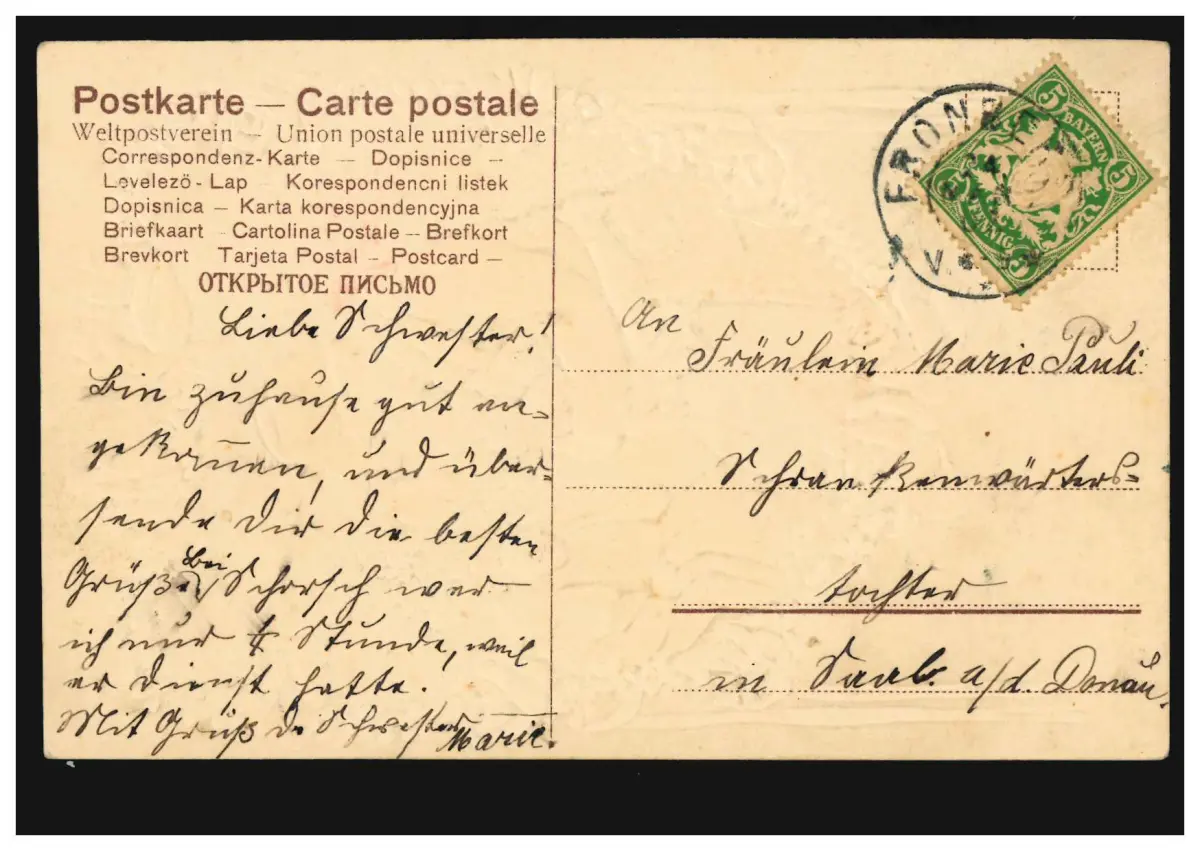 Postkarte — Carte postale
Weltpostverein — Union postale universelle
Correspondenz-Karte — Dopisnice —
Levelező-Lap Korespondencni listek
Dopisnica — Karta korespondencyjna
Briefkaart Cartolina Postale — Brefkort
Brevkort Tarjeta Postal — Postcard —
ОТКРЫТОЕ ПИСЬМО
Liebe Schwester!
Bin zuhause gut an=
gekommen, und über=
sende Dir die besten
Grüße, bei Schorsch war
ich nur Stunde, weil
er Dienst hatte.
Mit Gruß Schwester
Marie.
5 BAYERN 5
5 PFENNIG 5
FRON
V.
An
Fräulein Marie Pauli
Schrankenwärters=
tochter
in Saal. a/d. Donau.